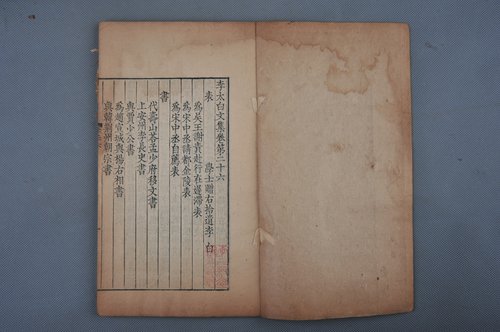 李太白文集卷第二十六
學士贈右拾遺李 白
表
為吳王謝責赴行在遲滯表
為宋中丞請都金陵表
為宋中丞自薦表
書
代壽山答孟少府移文書
上安州李長史書
與賈少公書
為趙宣城與楊右相書
與韓荊州朝宗書